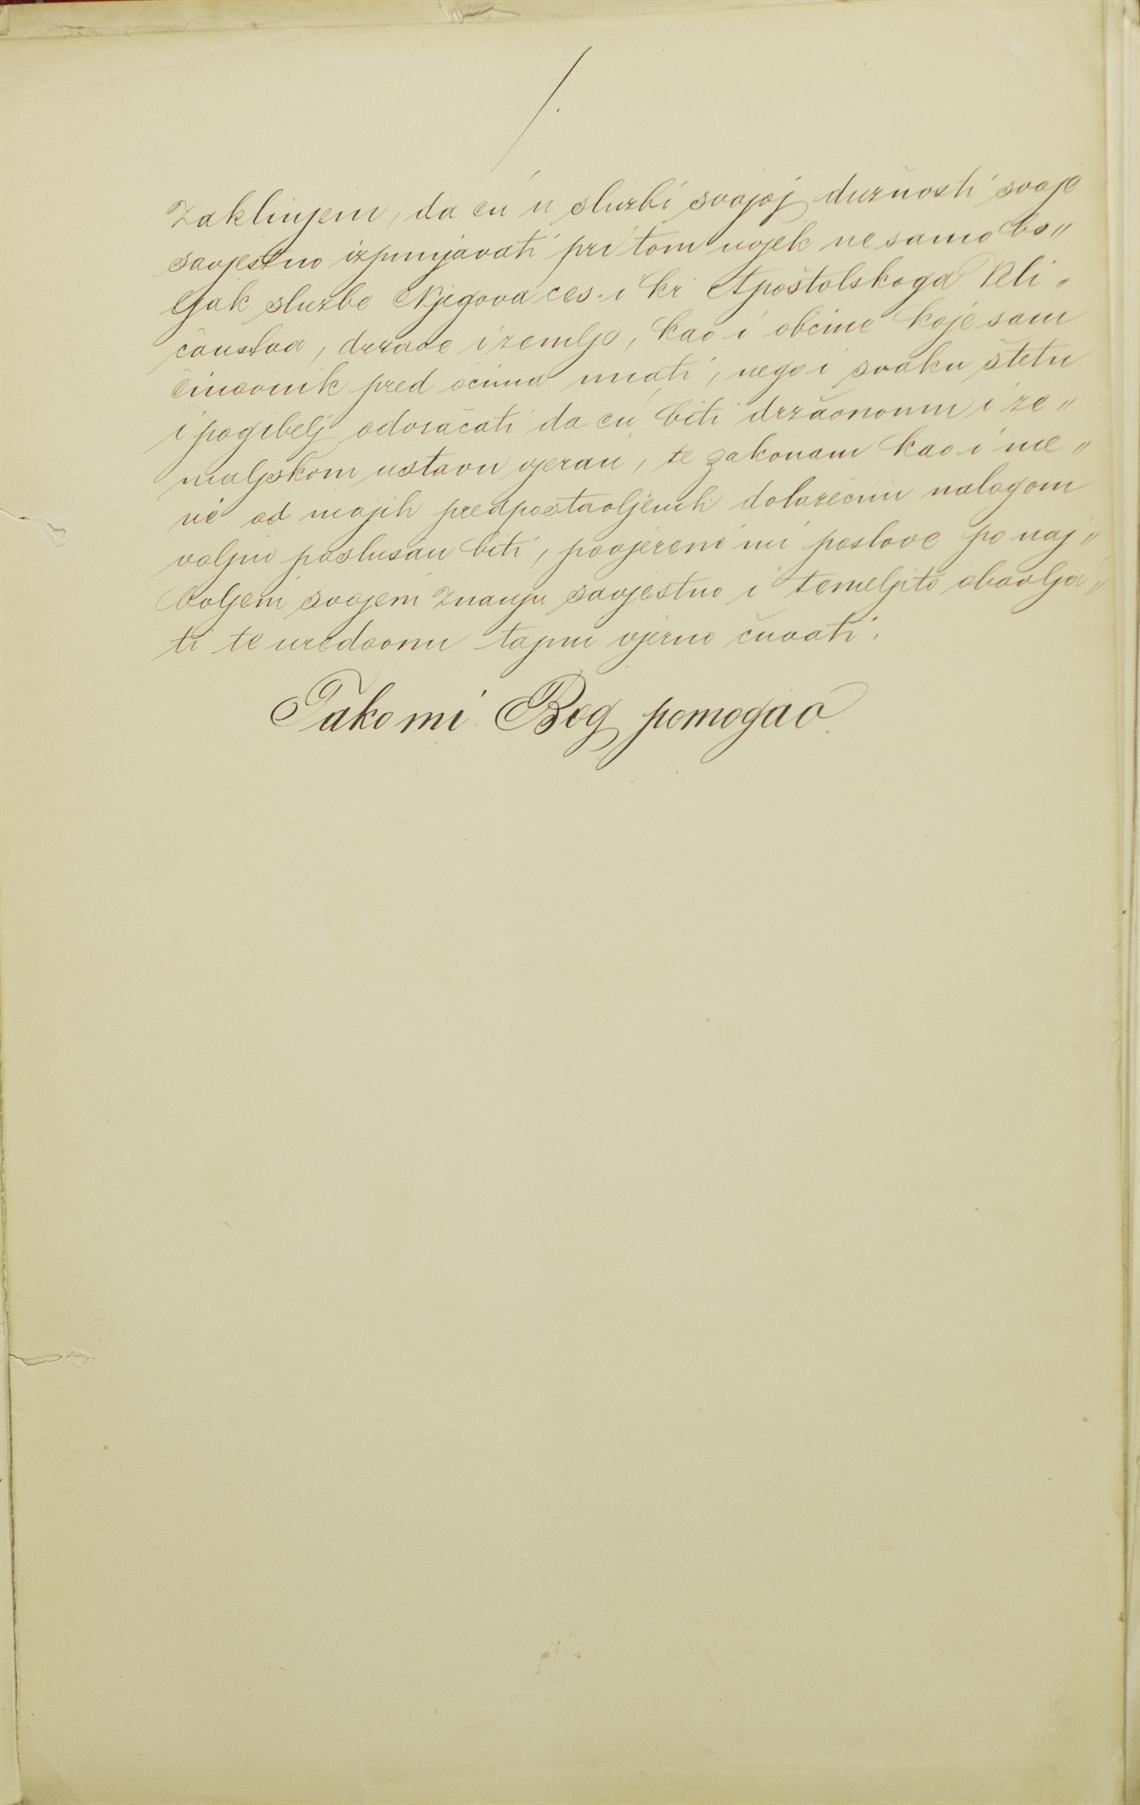 /.
zaklinjem, da ću u službi svojoj dužnosti svoje
savjestno izpunjavati pri tom uvjek nesamo bo„
ljak službe Njegova ces. i kr Apoštolskoga Veli„
čanstva, države i zemlje, kao i obćine koje sam
činovnik pred očima imati, nego i svaku štetu
i pogibelj odvraćati da ću biti državnomu i ze„
maljskom ustavu vjeran, te zakonam kao i me„
ni od mojih predpostavljenih dolazećim nalogom
voljno poslušan biti, povjerene mi poslove po naj„
boljem svojem znanju savjestno i temeljito obavlja„
ti te uredovnu tajnu vjerno čuvati.
Tako mi Bog pomogao.